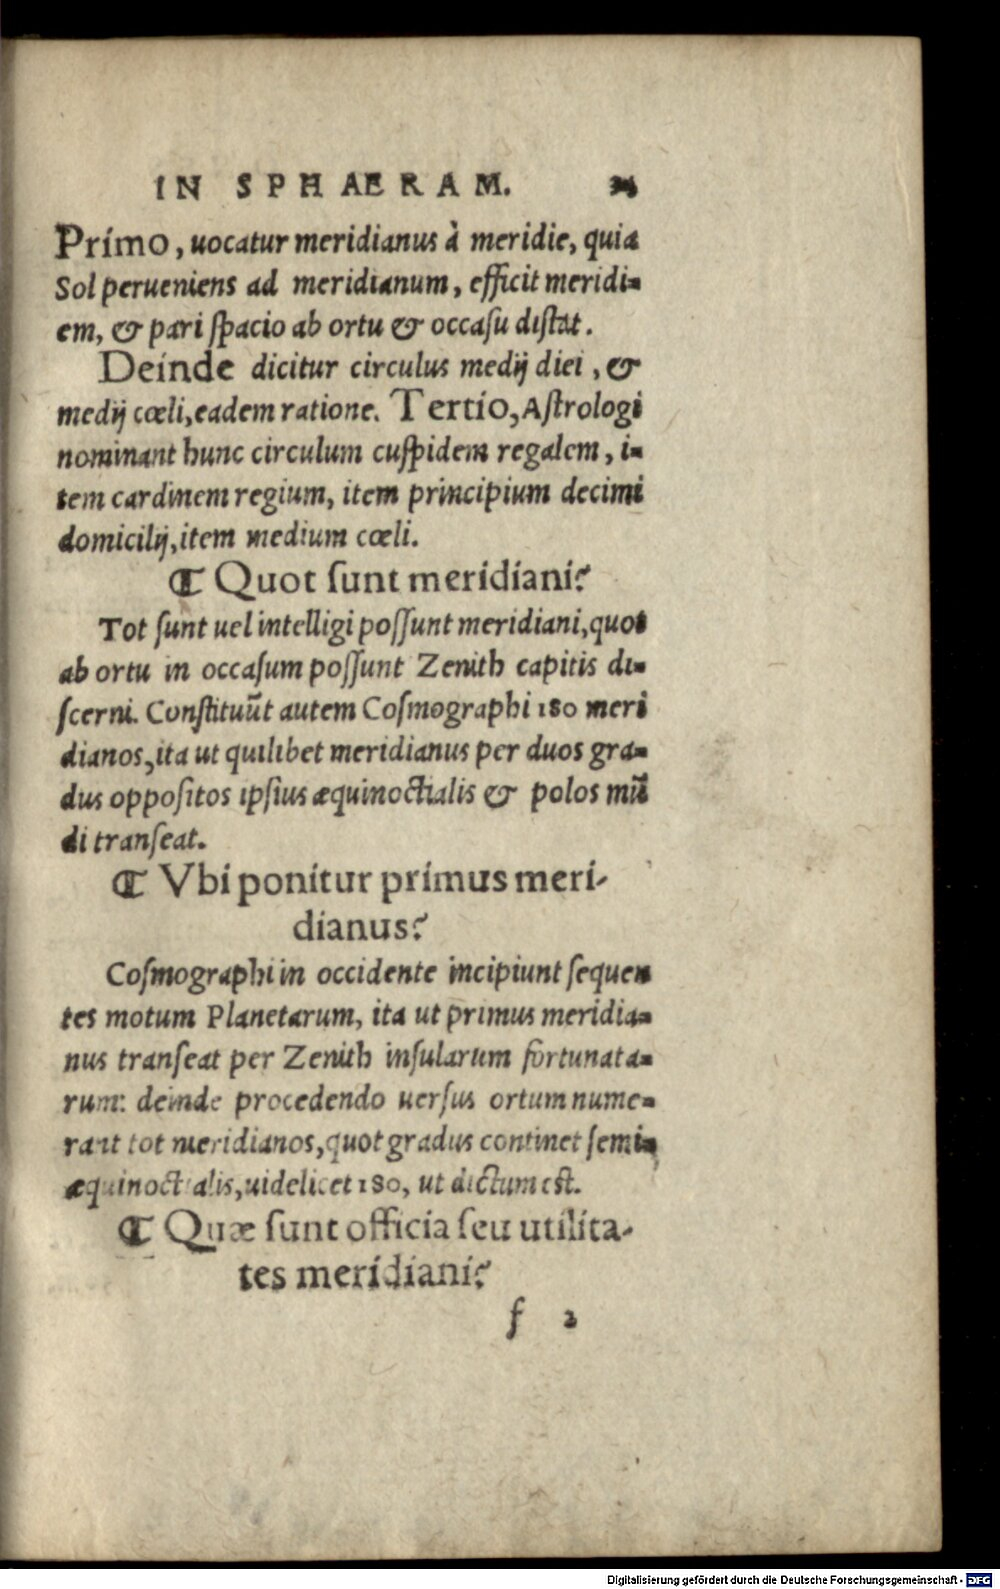 IN SPHAERAM.
Primo, uocatur meridianus à meridie, quia
Sol perueniens ad meridianum, efficit meridi-
em, & pari spacio ab ortu & occasu distat.
Deinde dicitur circulus medij diei, &
medij cœli, eadem ratione. Tertio, Astrologi
nominant hunc circulum cuspidem regalem, i-
tem cardinem regium, item principium decimi
domicilij, item medium cœli.
¶ Quot sunt meridiani?
Tot sunt uel intelligi possunt meridiani, quot
ab ortu in occasum possunt Zenith capitis di-
scerni. Constituūt autem Cosmographi 180 meri
dianos, ita ut quilibet meridianus per duos gra-
dus oppositos ipsius æquinoctialis & polos mū
di transeat.
¶ Vbi ponitur primus meri-
dianus?
Cosmographi in occidente incipiunt sequen
tes motum Planetarum, ita ut primus meridia-
nus transeat per Zenith insularum fortunata-
rum: deinde procedendo uersus ortum nume-
rant tot meridianos, quot gradus continet semi-
æquinoctialis, uidelicet 180, ut dictum est.
¶ Quæ sunt officia seu utilita-
tes meridiani?
f 2
Digitalisierung gefördert durch die Deutsche Forschungsgemeinschaft - DFG